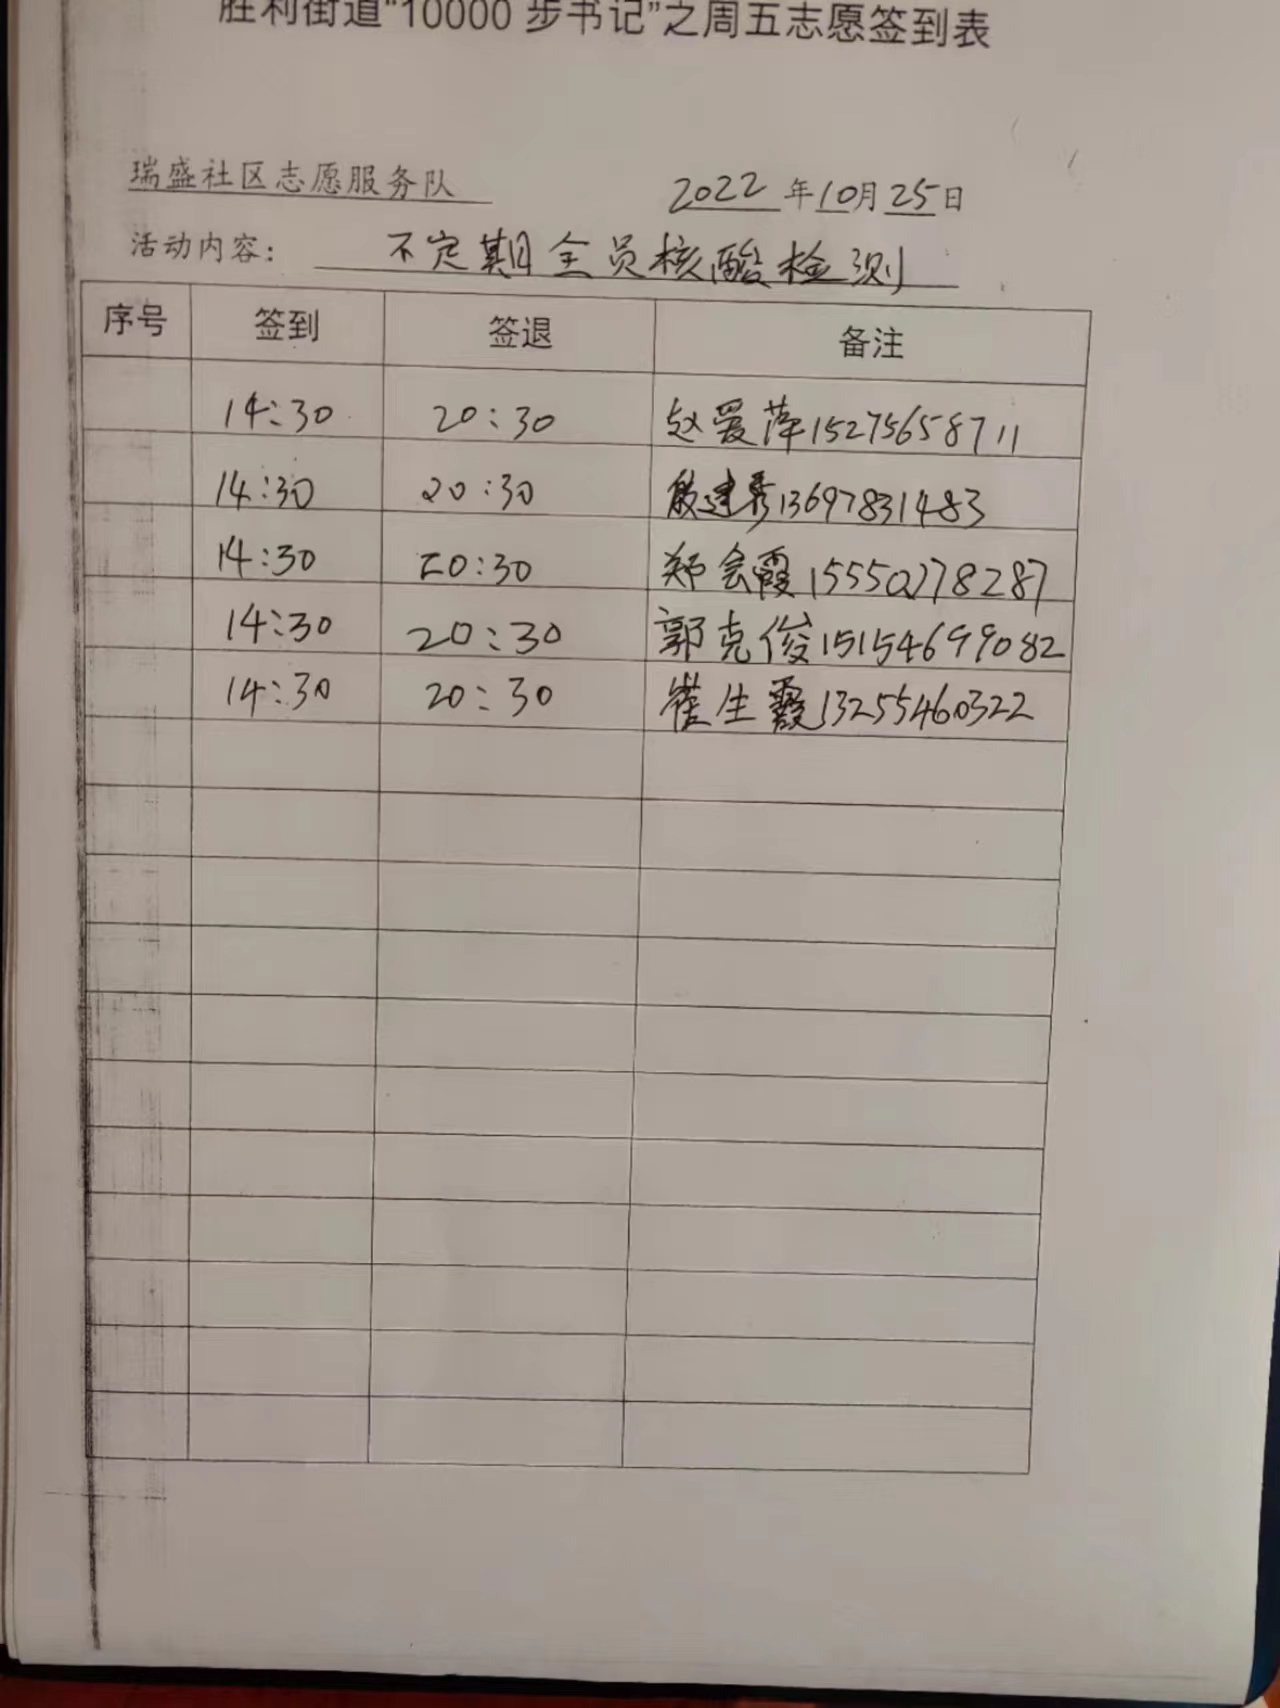 胜利街道“10000 步书记”之周五志愿签到表
瑞盛社区志愿服务队 2022 年 10 月 25 日
活动内容： 不定期全员核酸检测
序号 签到 签退 备注
14:30 20:30 赵爱萍 15275658711
14:30 20:30 殷建秀 13697831483
14:30 20:30 郑会霞 15550278287
14:30 20:30 郭克俊 15154699082
14:30 20:30 崔生霞 13255460322